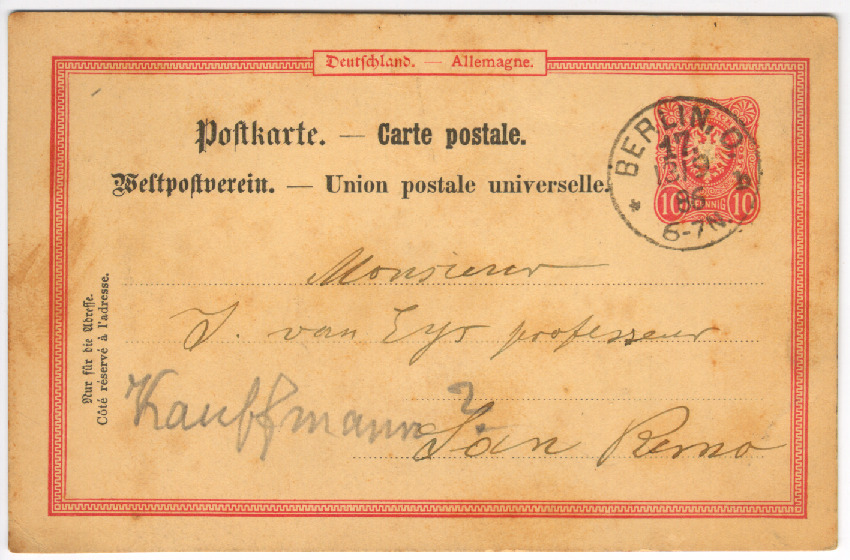 Deutschland. — Allemagne.
Postkarte. — Carte postale.
Weltpostverein. — Union postale universelle.
BERLIN, O.
17
86
6-7N.
10 PFENNIG 10
Monsieur
J. van Eys professeur
Kauffmann ?
San Remo
Nur für die Adresse.
Côté réservé à l'adresse.